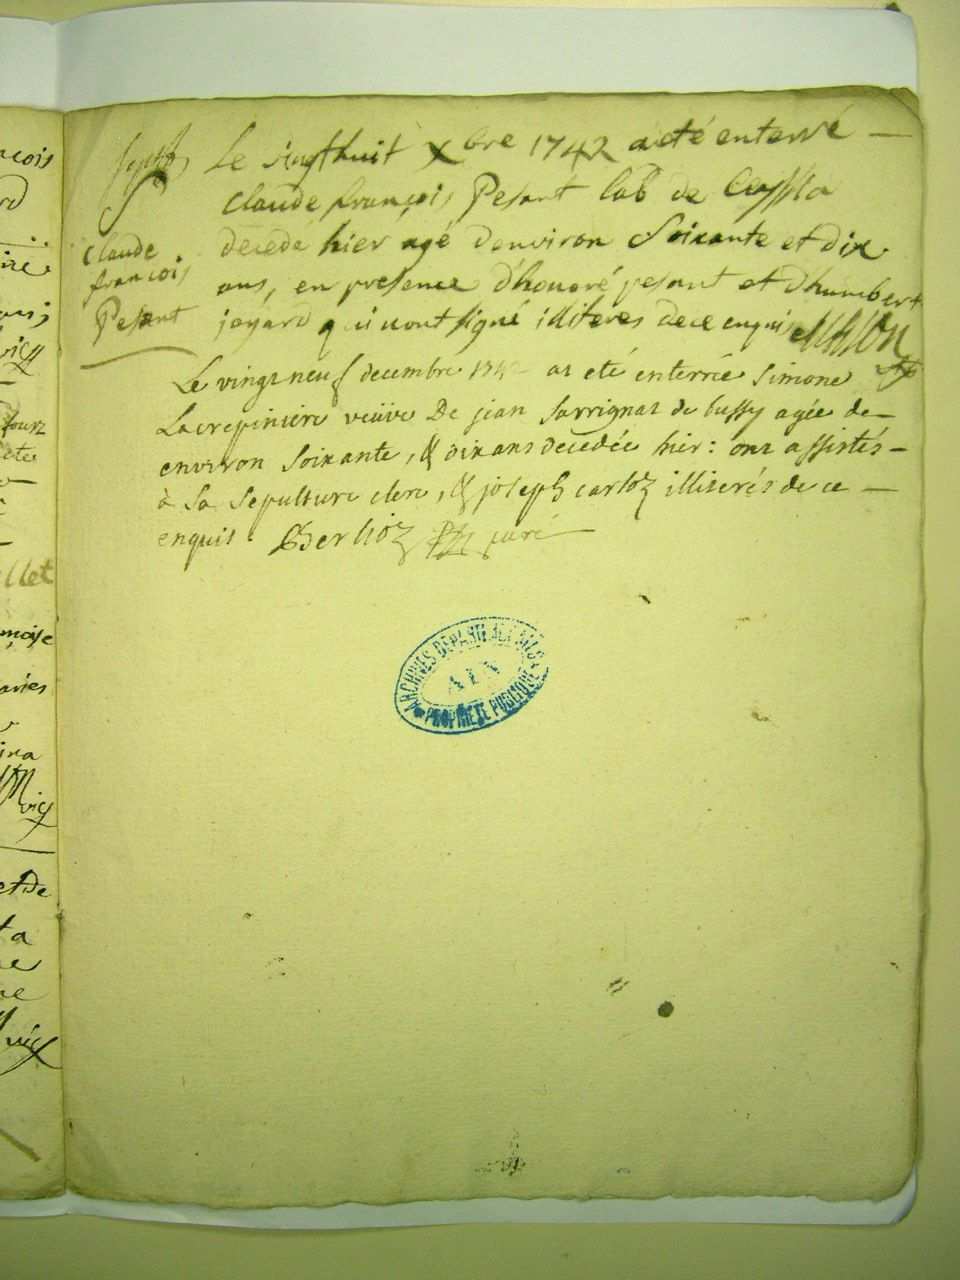 Le vingthuit Xbre 1742 a eté enterré
Claude françois Pesant lab de
decedé hier agé denviron Soixante et dix
ans, en presence d'honoré pesant et d'humbert
joyard qui nont signé illiteres de ce enquis
Claude
françois
Pesant
Le vingt neuf decembre 1742 at eté enterrée Simone
Lacrepiniere veüve De jean de bussy agée de
environ Soixante, & dix ans decedée hier: ont assistés
à Sa Sepulture clerc, & joseph carloz illiterés de ce
enquis Berlioz curé
ARCHIVES DEPARTEMENTALES
AIN
PROPRIETE PUBLIQUE
ncois
rd
ire
let
moise
ina
et De
ta